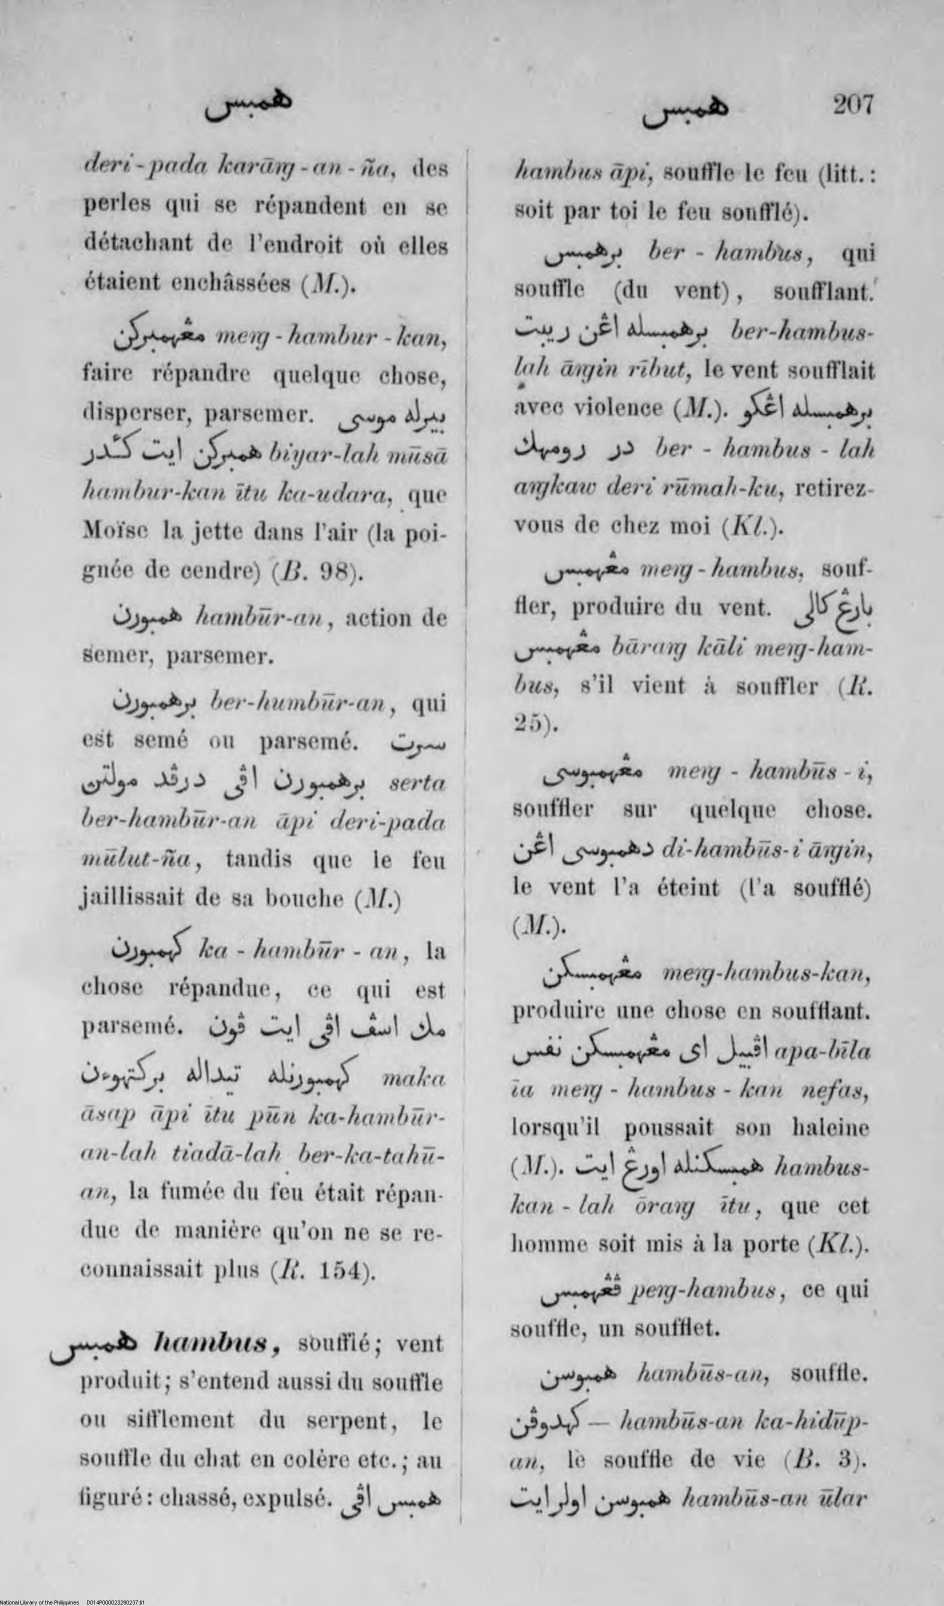 همبس
همبس
207
deri-pada karāng-an-ña, des
perles qui se répandent en se
détachant de l'endroit où elles
étaient enchâssées (M.).
مڠهمبركن meng-hambur-kan,
faire répandre quelque chose,
disperser, parsemer. بيرله موسى
همبركن ايت كئدر biyar-lah mūsā
hambur-kan ītu ka-udara, que
Moïse la jette dans l'air (la poi-
gnée de cendre) (B. 98).
همبورن hambūr-an, action de
semer, parsemer.
برهمبورن ber-humbūr-an, qui
est semé ou parsemé. سرت
برهمبورن اڤى درڤد مولتن serta
ber-hambūr-an āpi deri-pada
mūlut-ña, tandis que le feu
jaillissait de sa bouche (M.)
كهمبورن ka-hambūr-an, la
chose répandue, ce qui est
parsemé. مك اسڤ اڤى ايت ڤون
كهمبورنله تيداله بركتهوءن maka
āsap āpi ītu pūn ka-hambūr-
an-lah tiadā-lah ber-ka-tahū-
an, la fumée du feu était répan-
due de manière qu'on ne se re-
connaissait plus (R. 154).
همبس hambus, soufflé; vent
produit; s'entend aussi du souffle
ou sifflement du serpent, le
souffle du chat en colère etc.; au
figuré: chassé, expulsé. همبس اڤى
hambus āpi, souffle le feu (litt.:
soit par toi le feu soufflé).
برهمبس ber-hambus, qui
souffle (du vent), soufflant.
برهمبسله اڠن ريبت ber-hambus-
lah āngin rībut, le vent soufflait
avec violence (M.). برهمبسله اڠكو
در رومهك ber-hambus-lah
angkaw deri rūmah-ku, retirez-
vous de chez moi (Kl.).
مڠهمبس meng-hambus, souf-
fler, produire du vent. بارڠ كالى
مڠهمبس bārang kāli meng-ham-
bus, s'il vient à souffler (R.
25).
مڠهمبوسى meng-hambūs-i,
souffler sur quelque chose.
دهمبوسى اڠن di-hambūs-i āngin,
le vent l'a éteint (l'a soufflé)
(M.).
مڠهمبسكن meng-hambus-kan,
produire une chose en soufflant.
اڤبيل اى مڠهمبسكن نفس apa-bīla
īa meng-hambus-kan nefas,
lorsqu'il poussait son haleine
(M.). همبسكنله اورڠ ايت hambus-
kan-lah ōrang ītu, que cet
homme soit mis à la porte (Kl.).
ڤڠهمبس peng-hambus, ce qui
souffle, un soufflet.
همبوسن hambūs-an, souffle.
كهدوڤن — hambūs-an ka-hidūp-
an, le souffle de vie (B. 3).
همبوسن اولرايت hambūs-an ūlar
National Library of the Philippines